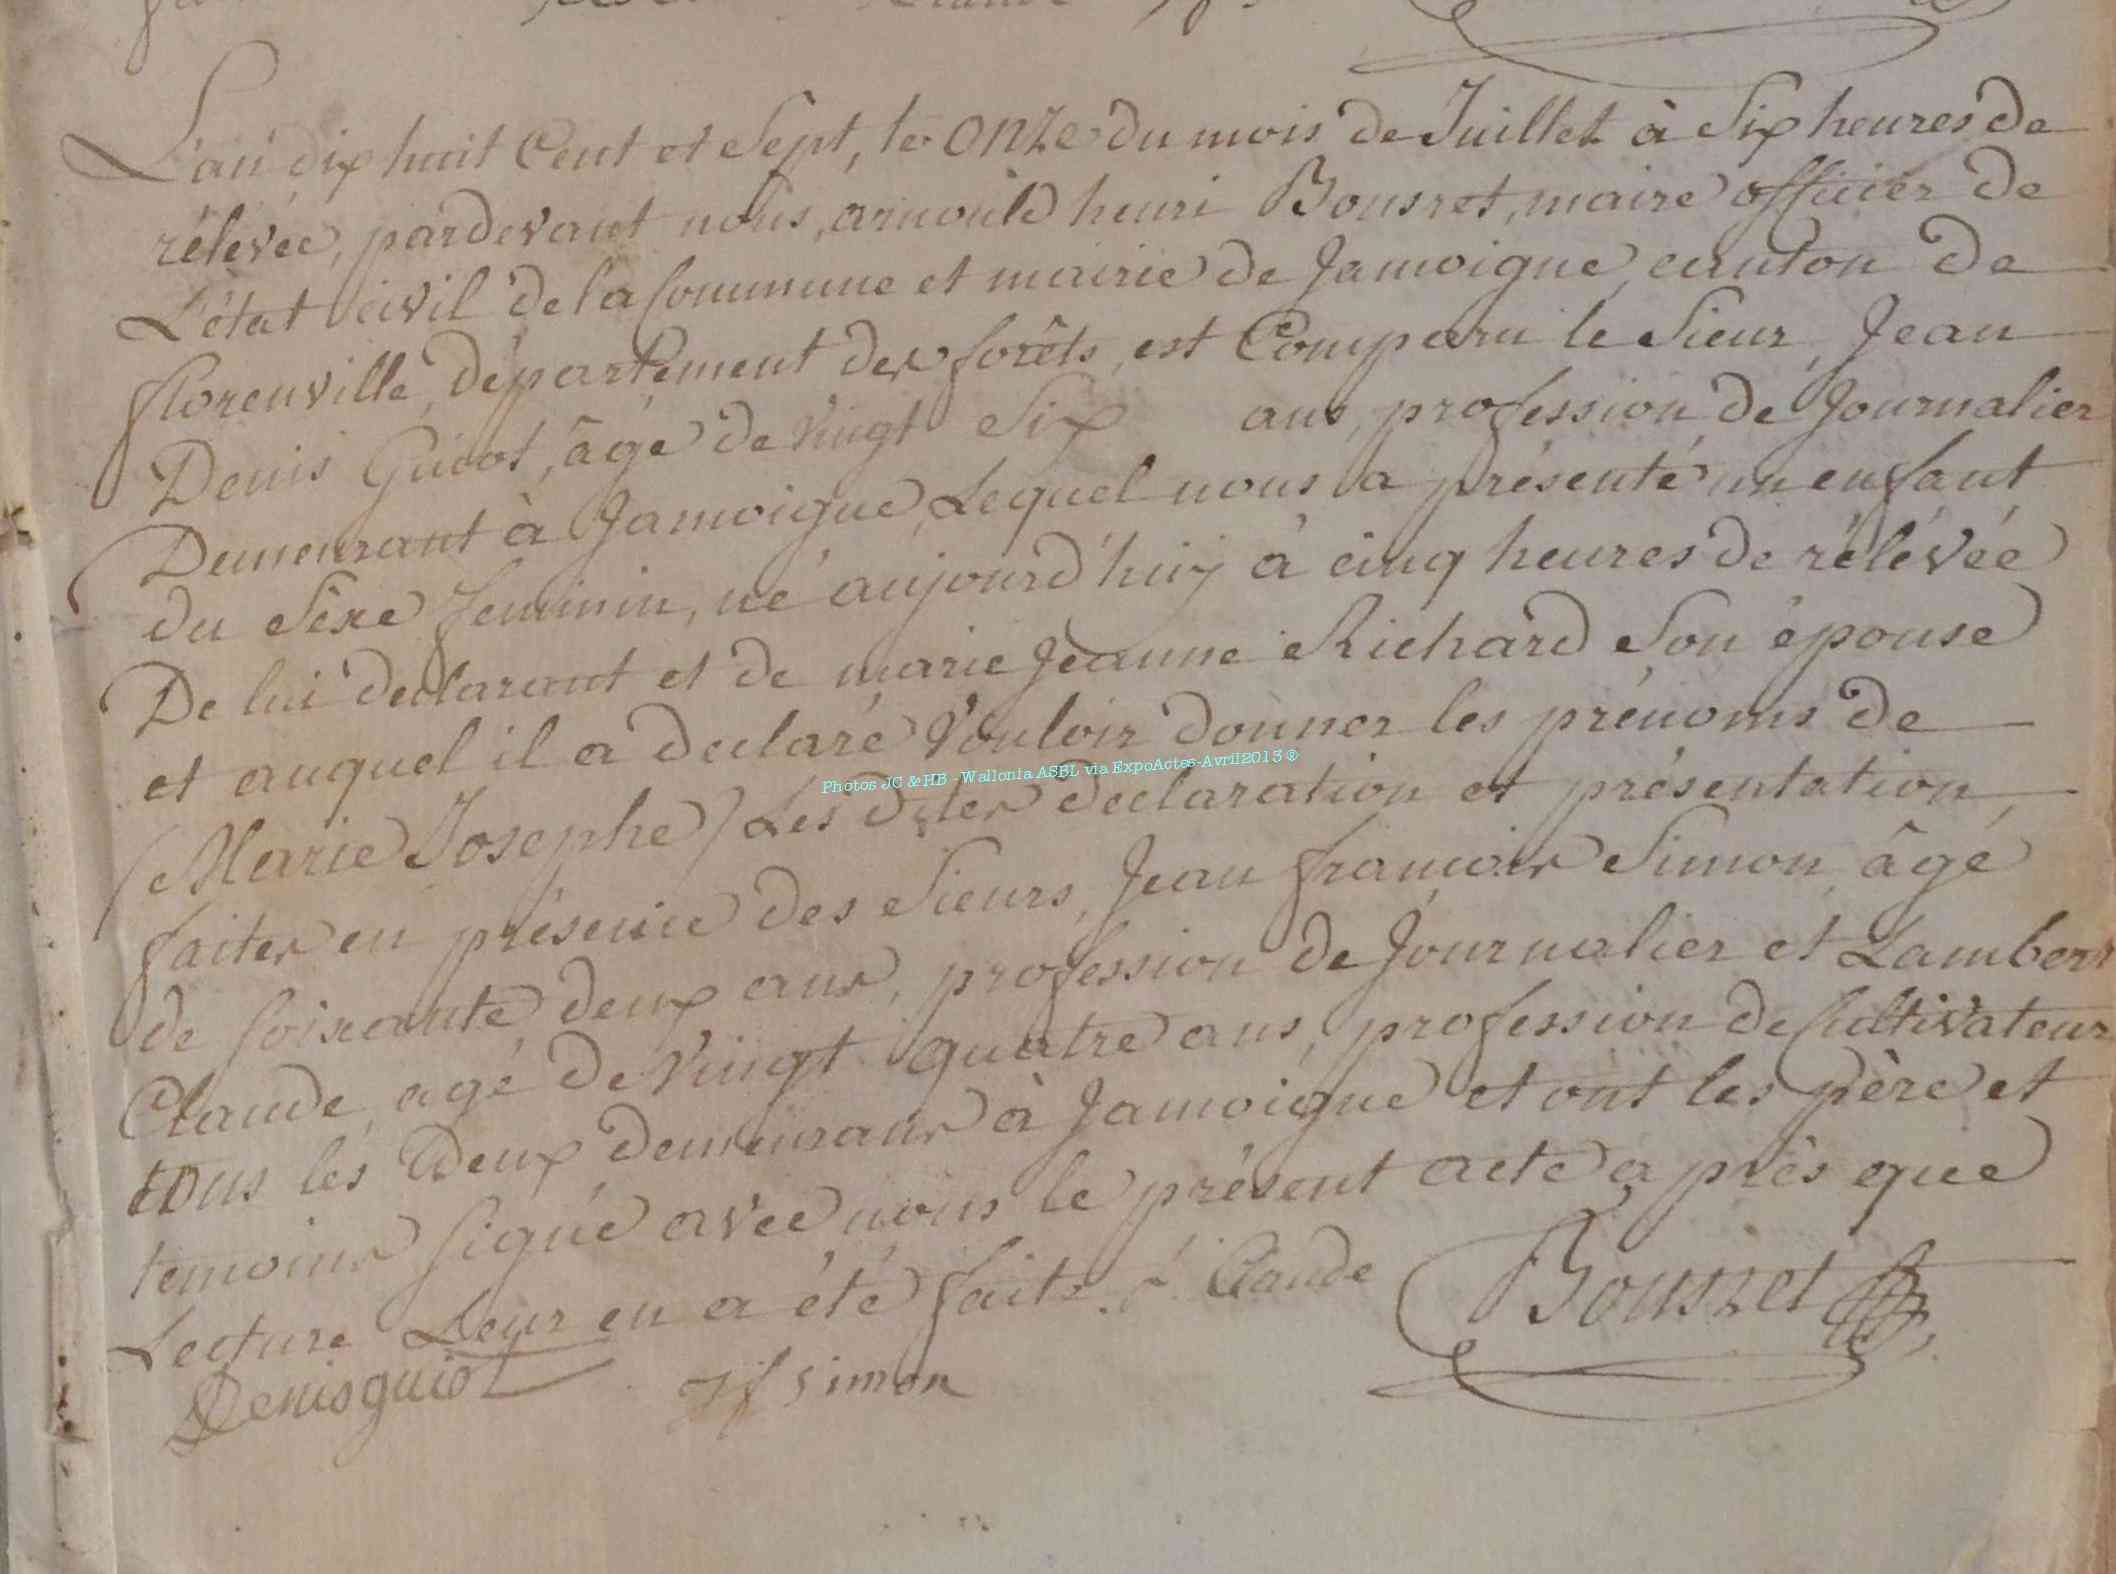 L'an dix huit Cent et Sept, le onze du mois de Juillet à Six heures de
rélevée, pardevant nous, arnould henri Bousret, maire officier de
L'état civil de la Commune et mairie de Jamoigne, canton de
florenville, département des forêts, est Comparu le Sieur, Jean
Denis Guiot, âgé de vingt Six ans, profession de Journalier
Demeurant à Jamoigne, Lequel nous a présenté un enfant
du Séxe feminin, né aujourd'huy à cinq heures de rélévée
De lui declarant et de marie Jeanne Richard Son épouse
et auquel il a declaré Vouloir donner les prénoms de
(Marie Josephe) Les dites declaration et présentation,
faites en présence des Sieurs, Jean françois Simon, âgé
de soixante deux ans, profession de Journalier et Lambert
Claude, agé de Vingt quatre ans, profession de Cultivateur
tous les deux demeurans à Jamoigne et ont les père et
temoins signé avec nous le présent acte après que
Lecture Leur en a été faite. Claude
Bousret
Denis guiot
Jf simon
Photos JC & HB - Wallonia ASBL via ExpoActes-Avril2013 ®